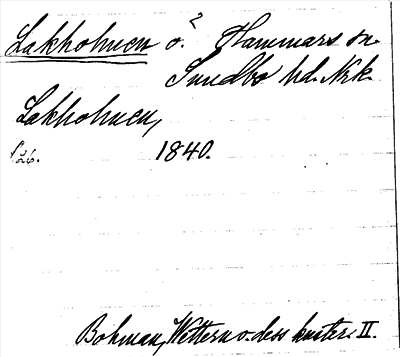 Lakholmen o.² Hammars sn.
Sundbo hd. Nrk.
Lakholmen,
s. 26. 1840.
Bohman, Wettern o. dess kuster. II.